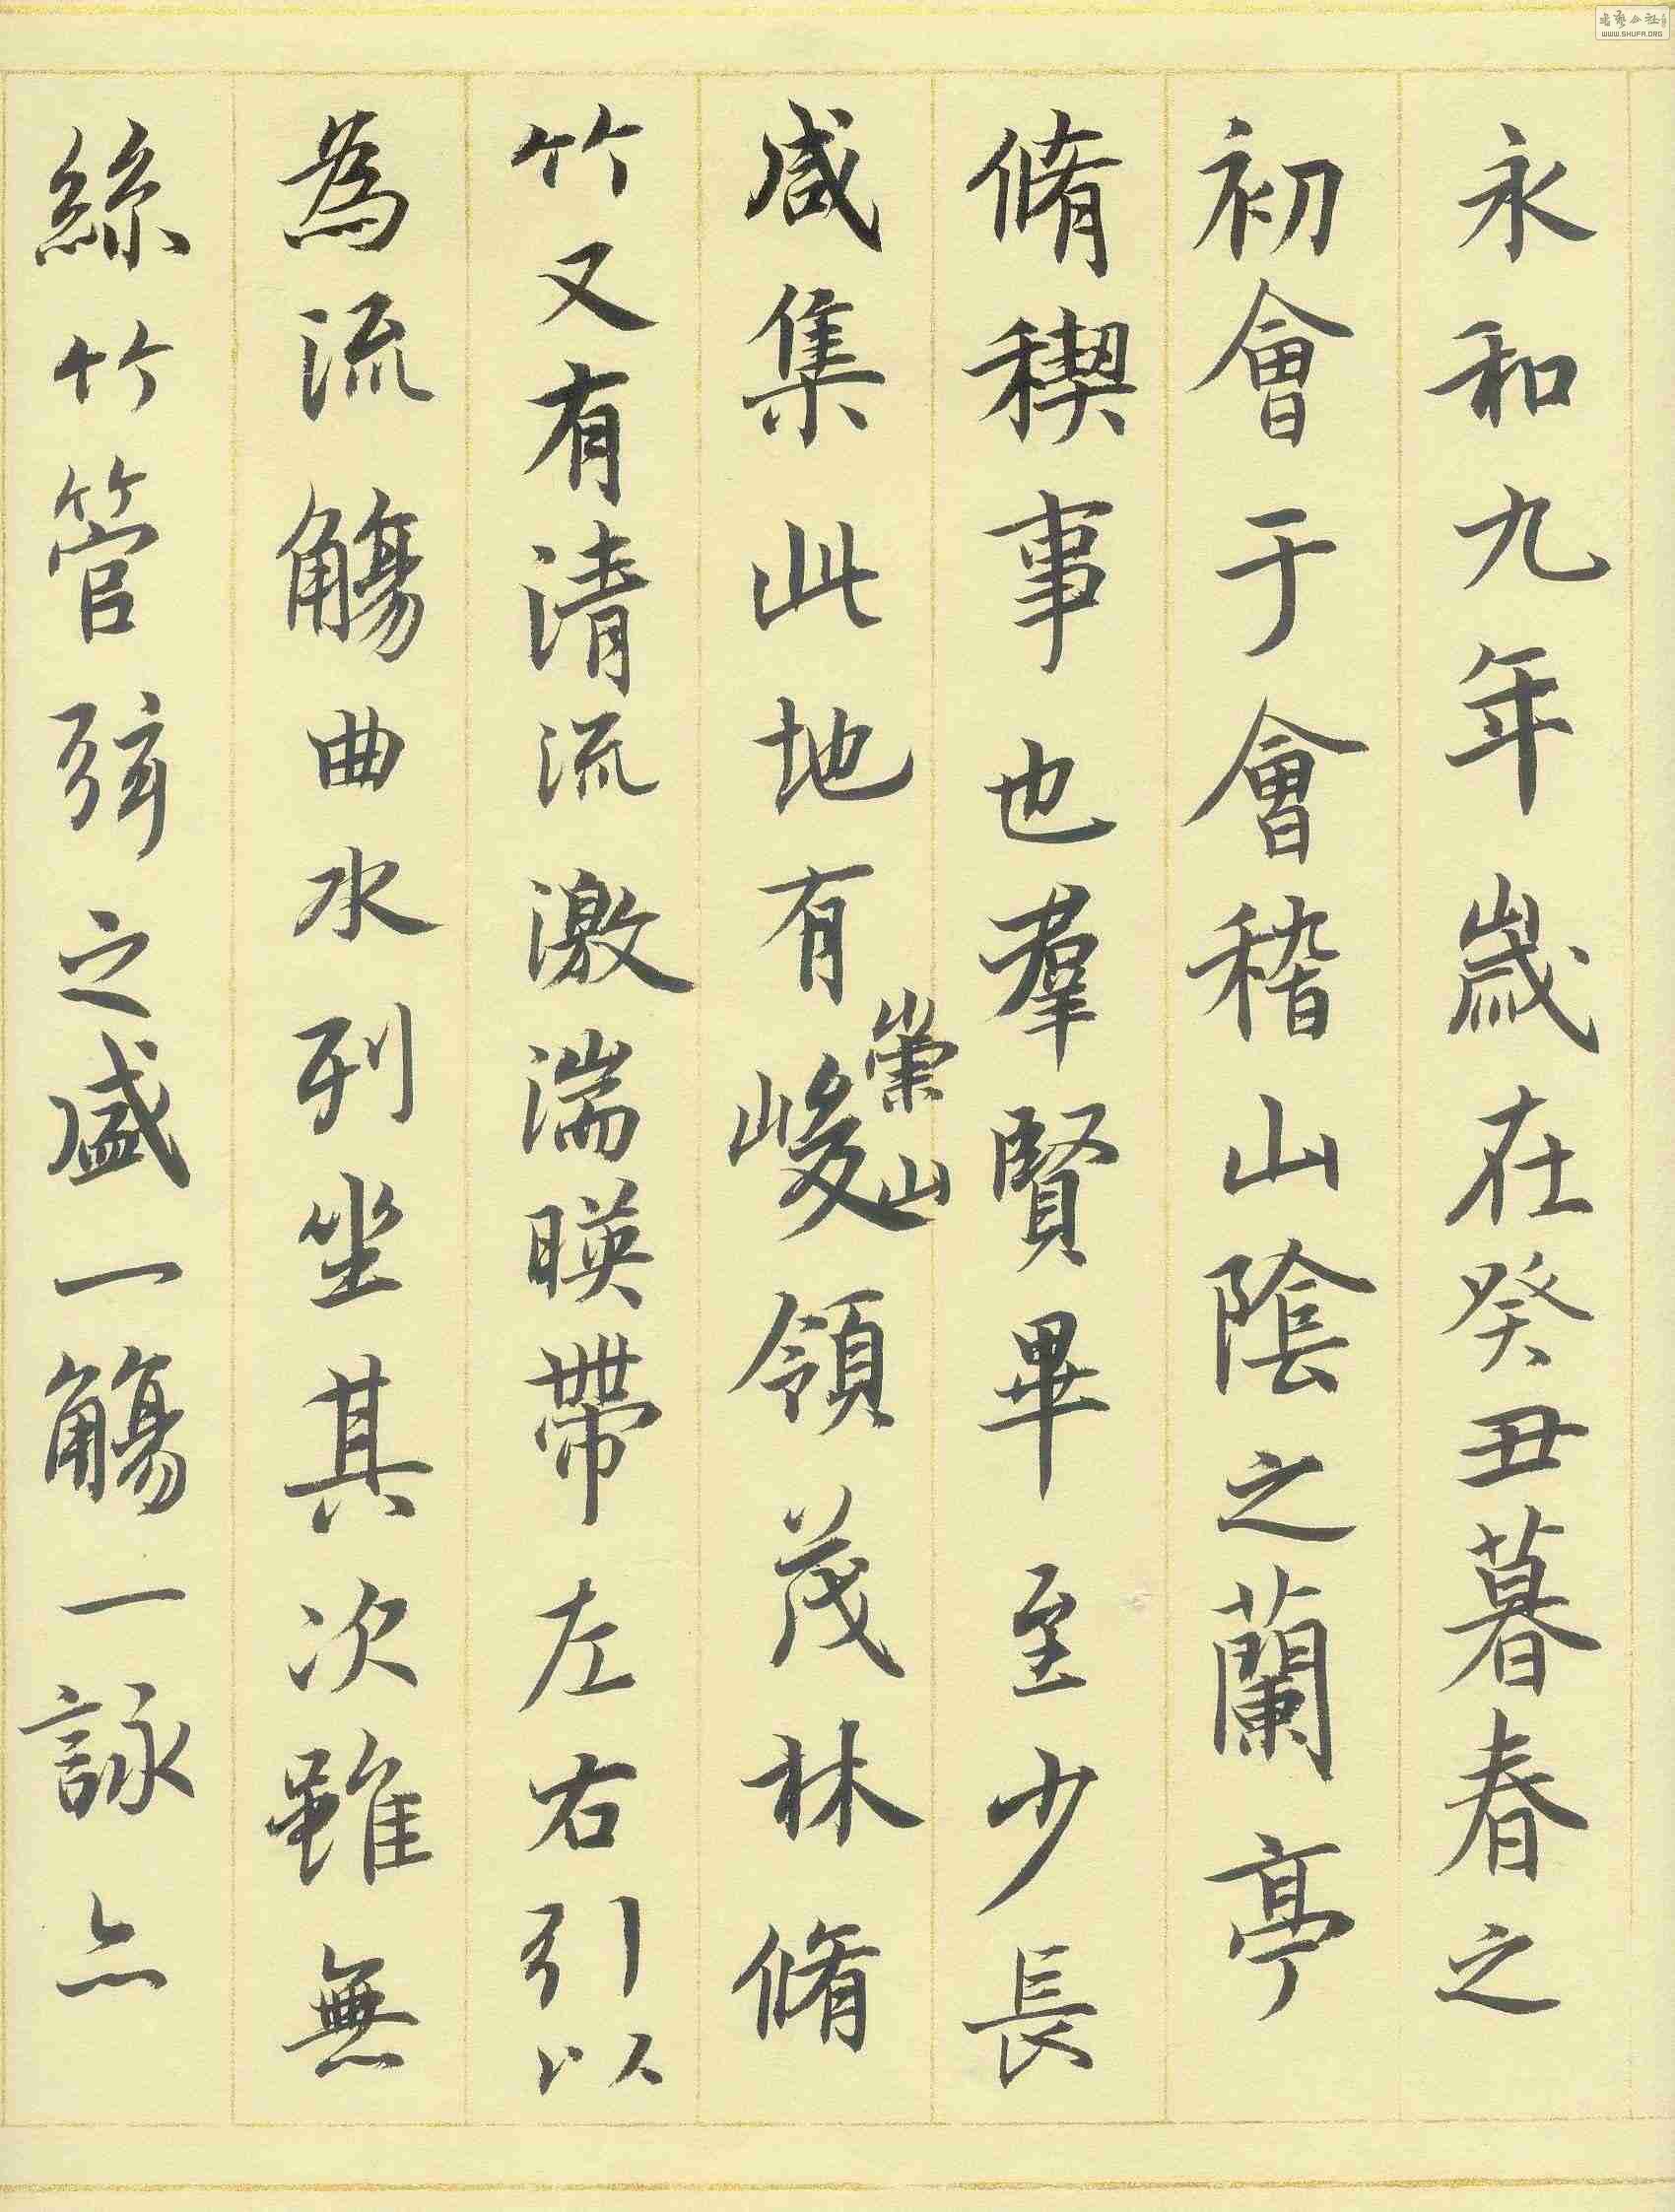 永和九年歲在癸丑暮春之
初會于會稽山陰之蘭亭
脩稧事也羣賢畢至少長
咸集此地有崇山峻領茂林脩
竹又有清流激湍暎帶左右引以
為流觴曲水列坐其次雖無
絲竹管弦之盛一觴一詠亦
WWW.SHUFA.ORG